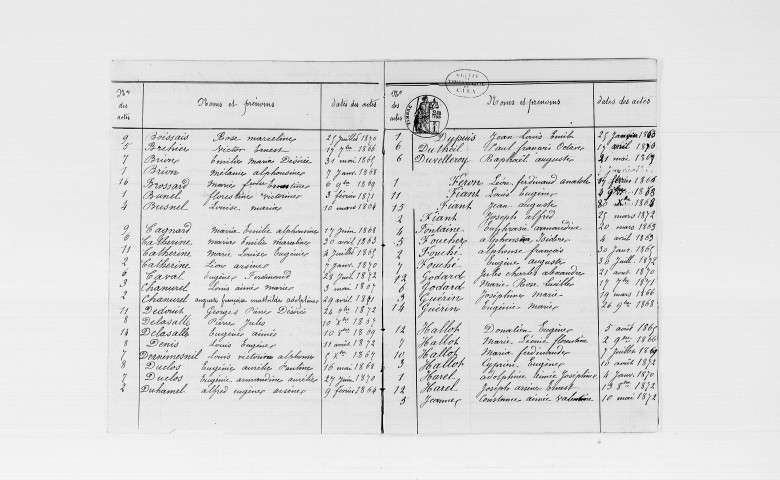 Nos des actes Noms et prénoms dates des actes
9 Boissais Rose marceline 25 juillet 1870
5 Brehier Victor Ernest 17 7bre 1866
7 Brion Emilie maria Désirée 31 mai 1865
1 Brion Mélanie alphonsine 7 janv 1868
16 Brossard 6 9bre 1869
1 Brunel florestine victorine 3 février 1871
4 Busnel Louise maria 10 mars 1864
9 Cagnard Maria Emilie alphonsine 17 juin 1868
6 Catherine marie Emilie 30 avril 1863
11 Catherine Marie Louise Eugénie 4 juillet 1865
2 Catherine Léon arsène 7 janv. 1870
6 Caval Eugène Ferdinand 28 juil 1872
3 Chanurel Louis aimé marie 3 mai 1867
2 Chanurel 29 avril 1871
11 Dedouit Georges Pierre Désiré 24 9bre 1872
8 Delasalle Pierre Jules 10 Xbre 1867
14 Delasalle Eugénie aimée 10 8bre 1868
8 Denis Louis Eugène 11 août 1872
7 Louis victorien alphonse 5 Xbre 1867
8 Duclos Eugénie aurélie Pauline 26 mai 1868
7 Duclos Eugénie armandine aurélie 27 juin 1870
2 Duhamel alfred eugène arsène 9 février 1864
No des actes Noms et prénoms dates des actes
1 Dupuis Jean Louis Emile 25 janvier 1863
6 Dutheil Paul françois Octave 15 avril 1870
6 Duvelleroy Raphaël auguste 21 mai 1869
1 Féron Léon ferdinand anatole février 1866
11 Fiant Louis Eugène 9bre 1868
15 Fiant Jean auguste 30 Xbre 1868
2 Fiant Joseph alfred 25 mars 1872
4 Fontaine Euphrasie armandine 20 mars 1863
5 Foucher alphonsine Isidore 4 avril 1863
2 Fouché alphonse françois 30 janv. 1865
7 Fouché Eugène auguste 30 juillet 1872
12 Godard Jules charles alexandre 21 août 1870
6 Godard Marie Rose 17 7bre 1871
3 Guérin Joséphine Marie 19 mars 1866
14 Guérin Eugénie Marie 26 9bre 1868
12 Hallot Donatien Eugène 5 août 1865
7 Hallot Marie Léonie florentine 2 9bre 1866
10 Hallot Maria 7 juillet 1869
3 Hallot Cyprien Eugène 10 août 1872
1 Harel adolphine aimée Joséphine 4 janv. 1870
12 Harel Joseph arsène Ernest 13 8bre 1872
5 Jeanne Constance aimée Valentine 10 mai 1872